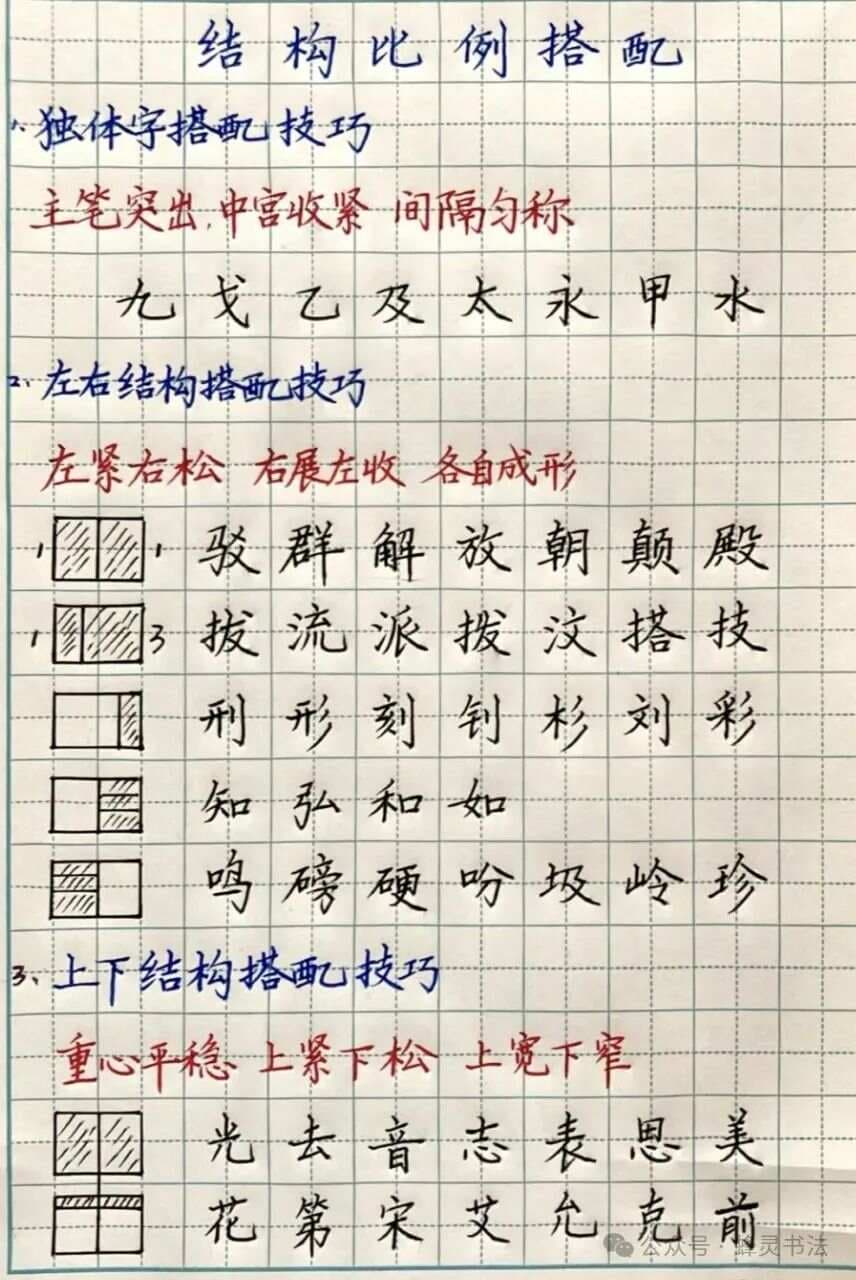 结构比例搭配
1、独体字搭配技巧
主笔突出、中宫收紧 间隔匀称
九戈乙及太永甲水
2、左右结构搭配技巧
左紧右松 右展左收 各自成形
1 1 驳群解放朝颠殿
1 3 拔流派拨汶搭技
刑形刻钊杉刘彩
知弘和如
鸣磅硬吩圾岭珍
3、上下结构搭配技巧
重心平稳 上紧下松 上宽下窄
光去音志表恩美
花第宋艾允克前
公众号·蝉灵书法